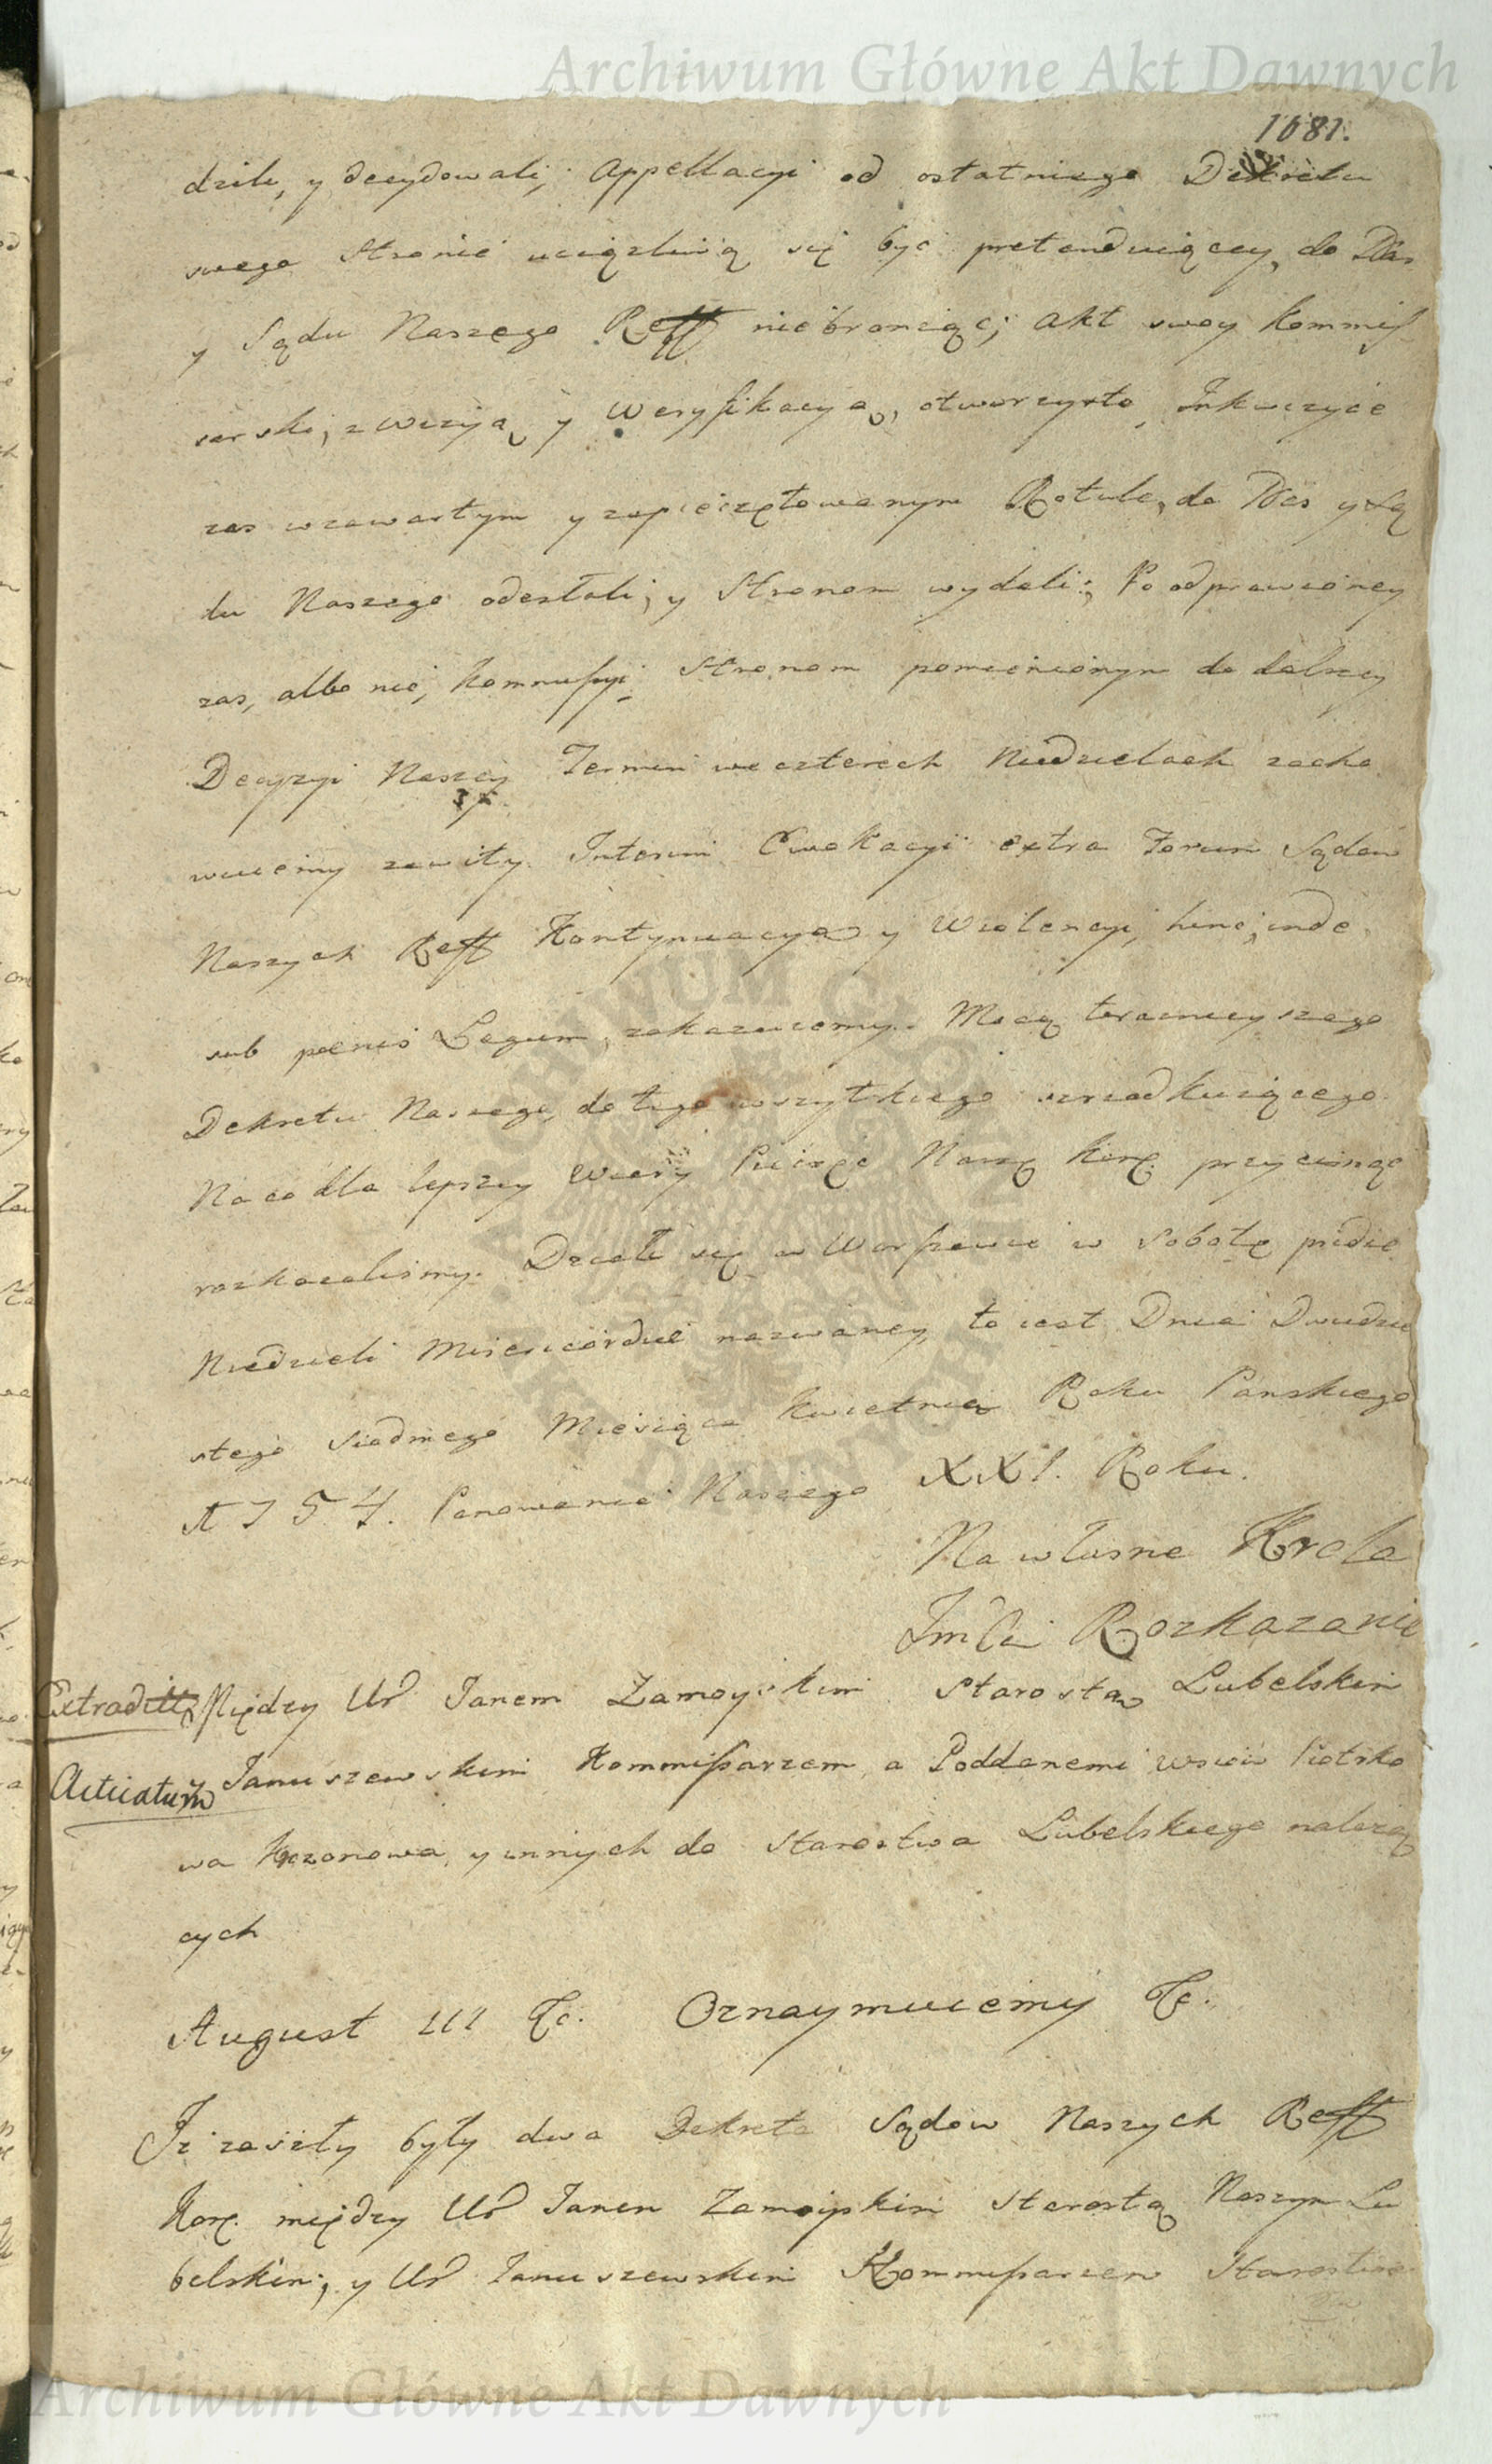 Archiwum Główne Akt Dawnych
1081.
dzili, y decydowali; Appellacyi od ostatniego Dekretu
swego Stronie uciążliwą się być pretenduiącey, do Nas
y Sądu Naszego Reff niebroniąc; Akt swoy Kommis
sarski, z Wizyią y Weryfikacyą, otworzysto, Inkwizycie
zas wzawartym y zapieczętowanym Rotule, do Nas y Są
du Naszego odesłali, y Stronom wydali; Po odprawioney
zas, albo nie, Kommissyi Stronom pomienionym do dalszey
Decyzyi Naszey Termin we czterech Niedzielach zacho
wuiemy zawity. Interim Ewokacyi extra Forum Sądow
Naszych Reff Kontynuacyą y Wiolencyi, hinc, inde,
sub poenis Legum, zakazuiemy. Mocą teraznieyszego
Dekretu Naszego, do tego wszytkiego szrzodkuiącego.
Na co dla lepszey Wiary Pieczęć Naszę Korę. przycisnąć
rozkazalismy. Działo się w Warszawie w Sobotę przed
Niedzieli Misericordiae nazwaney, to iest Dnia Dwudzie
stego Siodmego Miesiąca Kwietnia Roku Panskiego
1754. Panowania Naszego XXI. Roku.
Na własne Krola
Jmći Rozkazanie
Extraditt Między Ur Janem Zamoyskim Starostą Lubelskim
Acticatum Januszewskim Kommissarzem, a Poddanemi wsiow Piotrko
wa Krzonowa, y innych do Starostwa Lubelskiego należą
cych
August III &c. Oznaymuiemy &c.
Iż zaszły były dwa Dekreta Sądow Naszych Reff
Korę. między Ur Janem Zamoyskim Starostą Naszym Lu
belskim; y Ur Januszewskim Kommissarzem Starostwa
Archiwum Główne Akt Dawnych